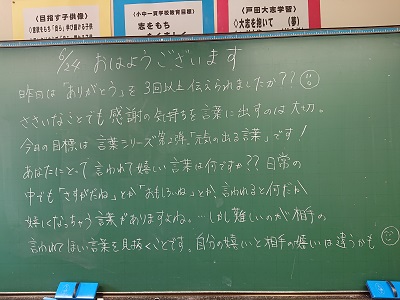 〈目指す子供像〉
〈小中一貫学校教育目標〉
志をもち
〈戸田大志学習〉
◇大志を抱いて (夢)
6/24 おはようございます
昨日は「ありがとう」を3回以上伝えられましたか??
ささいなことでも感謝の気持ちを言葉に出すのは大切。
今日の目標は言葉シリーズ第2弾。「元気の出る言葉」です!
あなたにとって言われて嬉しい言葉は何ですか??日常の
中でも「さすがだね」とか「おもしろいね」とか、言われると何だか
嬉しくなっちゃう言葉がありますよね。…しかし難しいのが相手の
言われてほしい言葉を見抜くことです。自分の嬉しいと相手の嬉しいは違うかも